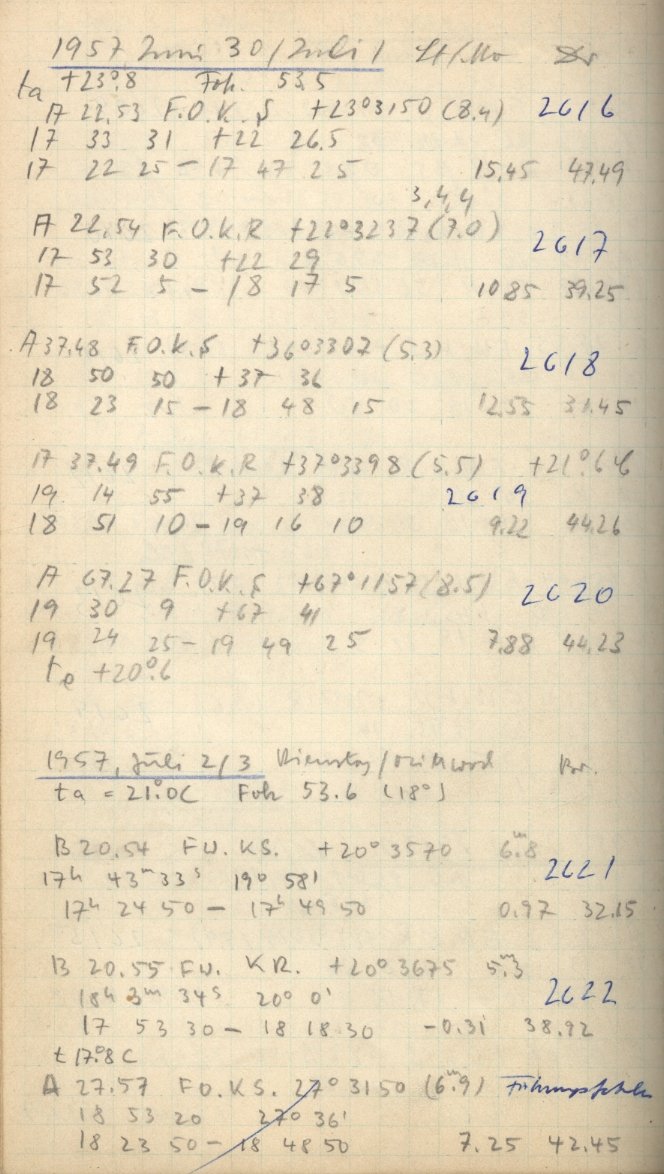 1957 Juni 30/Juli 1 St/Mo Dr
ta +23°.8 Fok. 53.5
A 22.53 F.O.K.S +23°3150 (8.4) 2616
17 33 31 +22 26.5
17 22 25 - 17 47 25 15.45 47.49
3,4,4
A 22.54 F.O.K.R +22°3237 (7.0) 2617
17 53 30 +22 29
17 52 5 - 18 17 5 10.85 39.25
A 37.48 F.O.K.S +36°3307 (5.3) 2618
18 50 50 +37 36
18 23 15 - 18 48 15 12.55 31.45
A 37.49 F.O.K.R +37°3398 (5.5) +21°.6
19 14 55 +37 38 2619
18 51 10 - 19 16 10 9.22 44.26
A 67.27 F.O.K.S +67°1157 (8.5) 2620
19 30 9 +67 41
19 24 25 - 19 49 25 7.88 44.23
te +20°.6
1957, Juli 2/3 Dienstag/Mittwoch
ta = 21°.0C Fok 53.6 (18°)
B 20.54 FU. KS. +20° 3570 6m.8 2621
17h 43m 33s 19° 58'
17h 24 50 - 17h 49 50 0.97 32.15
B 20.55 FU. KR. +20° 3675 5m.3
18h 3m 34s 20° 0' 2622
17 53 30 - 18 18 30 -0.31 38.92
t 17°.8 C
A 27.57 FO.KS. 27° 3150 (6m.9) Führungsfehler
18 53 20 27° 36'
18 23 50 - 18 48 50 7.25 42.45